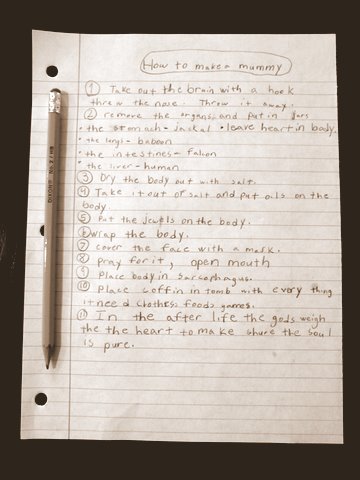 How to make a mummy
① Take out the brain with a hook
threw the nose. Throw it away.
② remove the organs, and put in jars
• the stomach - jackal • leave heart in body.
• the lungs - baboon
• the intestines - falion
• the liver - human
③ Dry the body out with salt.
④ Take it out of salt and put oils on the
body.
⑤ Put the jewels on the body.
⑥ wrap the body.
⑦ cover the face with a mask.
⑧ pray for it, open mouth
⑨ Place body in sarcophagus.
⑩ Place coffin in tomb with every thing
it need clothes: foods games.
⑪ In the after life the gods weigh
the the heart to make shure the soul
is pure.